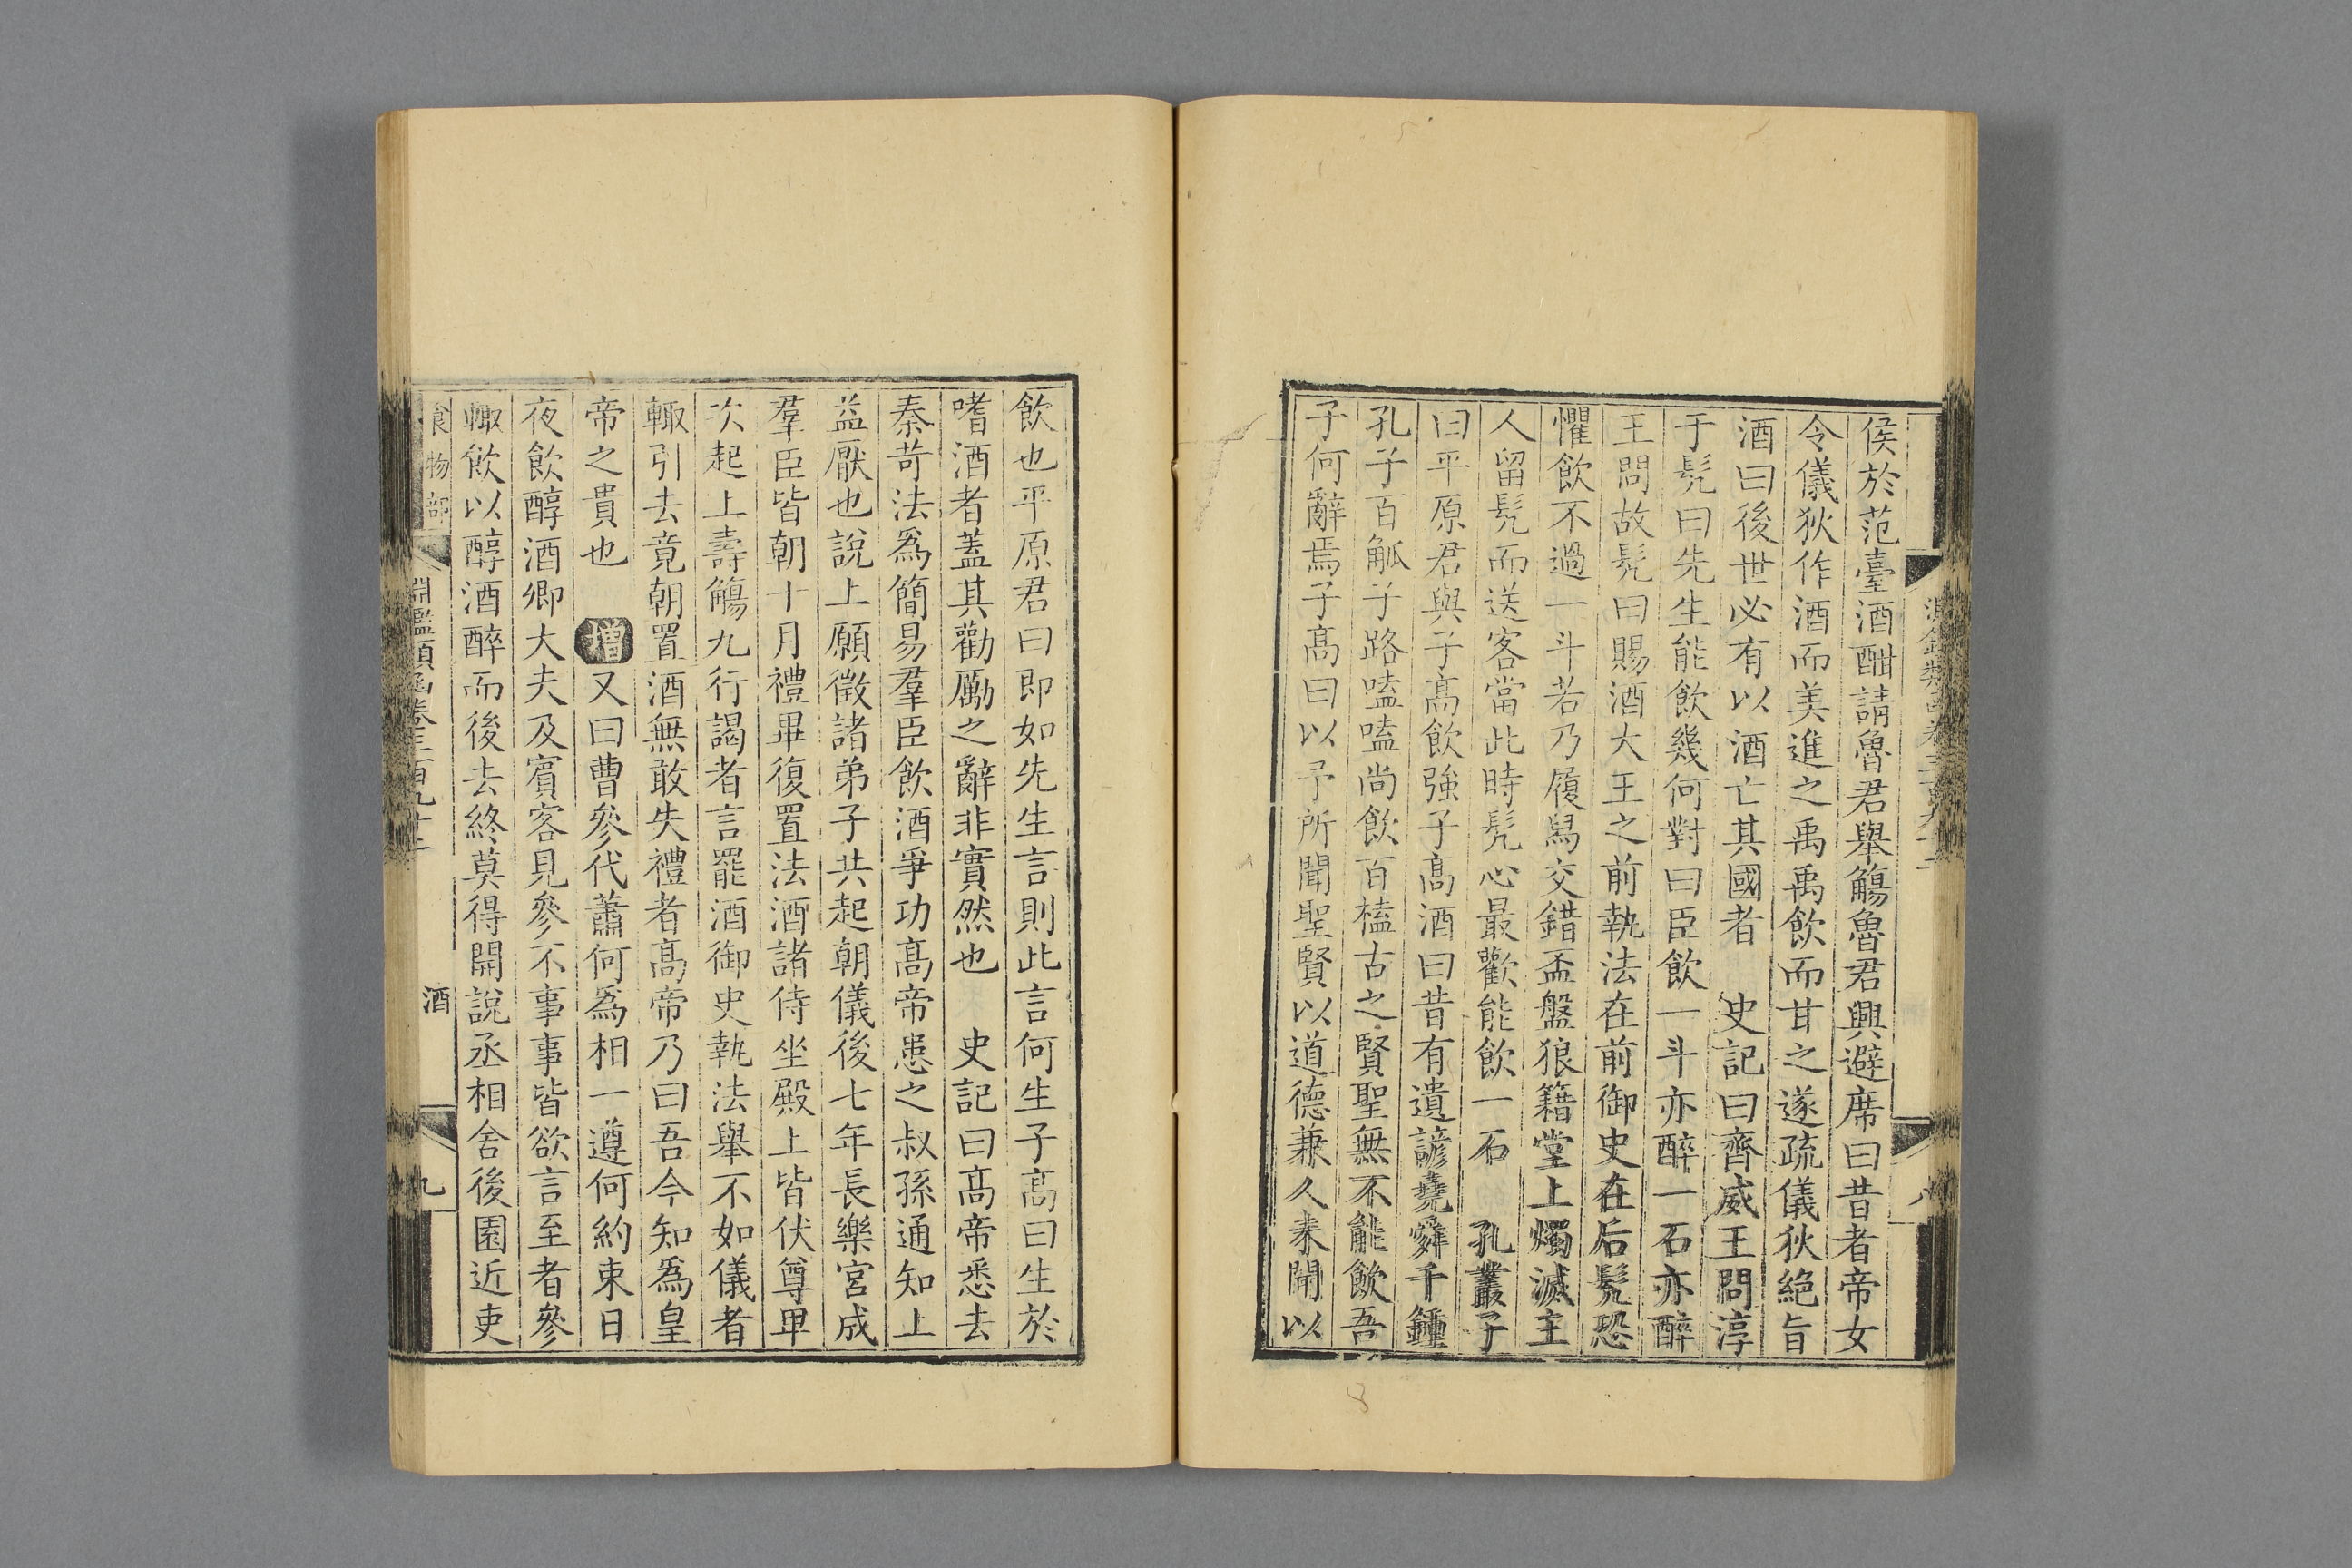 侯於范臺酒酣請魯君舉觴魯君興避席曰昔者帝女
令儀狄作酒而美進之禹禹飲而甘之遂疏儀狄絕旨
酒曰後世必有以酒亡其國者　史記曰齊威王問淳
于髠曰先生能飲幾何對曰臣飲一斗亦醉一石亦醉
王問故髠曰賜酒大王之前執法在前御史在后髠恐
懼飲不過一斗若乃履舄交錯盃盤狼籍堂上燭滅主
人留髠而送客當此時髠心最歡能飲一石　孔叢子
曰平原君與子髙飲強子髙酒曰昔有遺諺堯舜千鍾
孔子百觚子路嗑嗑尚飲百榼古之賢聖無不能飲吾
子何辭焉子髙曰以予所聞聖賢以道德兼人未聞以
飲也平原君曰即如先生言則此言何生子髙曰生於
嗜酒者蓋其勸厲之辭非實然也　史記曰髙帝悉去
秦苛法爲簡易羣臣飲酒爭功髙帝患之叔孫通知上
益厭也說上願徵諸弟子共起朝儀後七年長樂宮成
羣臣皆朝十月禮畢復置法酒諸侍坐殿上皆伏尊卑
次起上壽觴九行謁者言罷酒御史執法舉不如儀者
輙引去竟朝置酒無敢失禮者髙帝乃曰吾今知爲皇
帝之貴也　增又曰曹參代蕭何爲相一遵何約束日
夜飲醇酒卿大夫及賓客見參不事事皆欲言至者參
輙飲以醇酒醉而後去終莫得開說丞相舍後園近吏
食物部　淵鑑類函卷三百九十二　酒　九